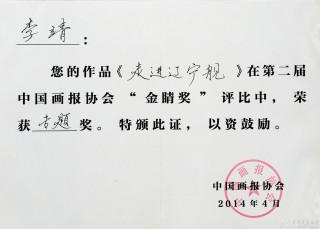 李靖：
您的作品《走进辽宁舰》在第二届
中国画报协会“金睛奖”评比中，荣
获专题奖。特颁此证，以资鼓励。
中国画报协会
2014年4月